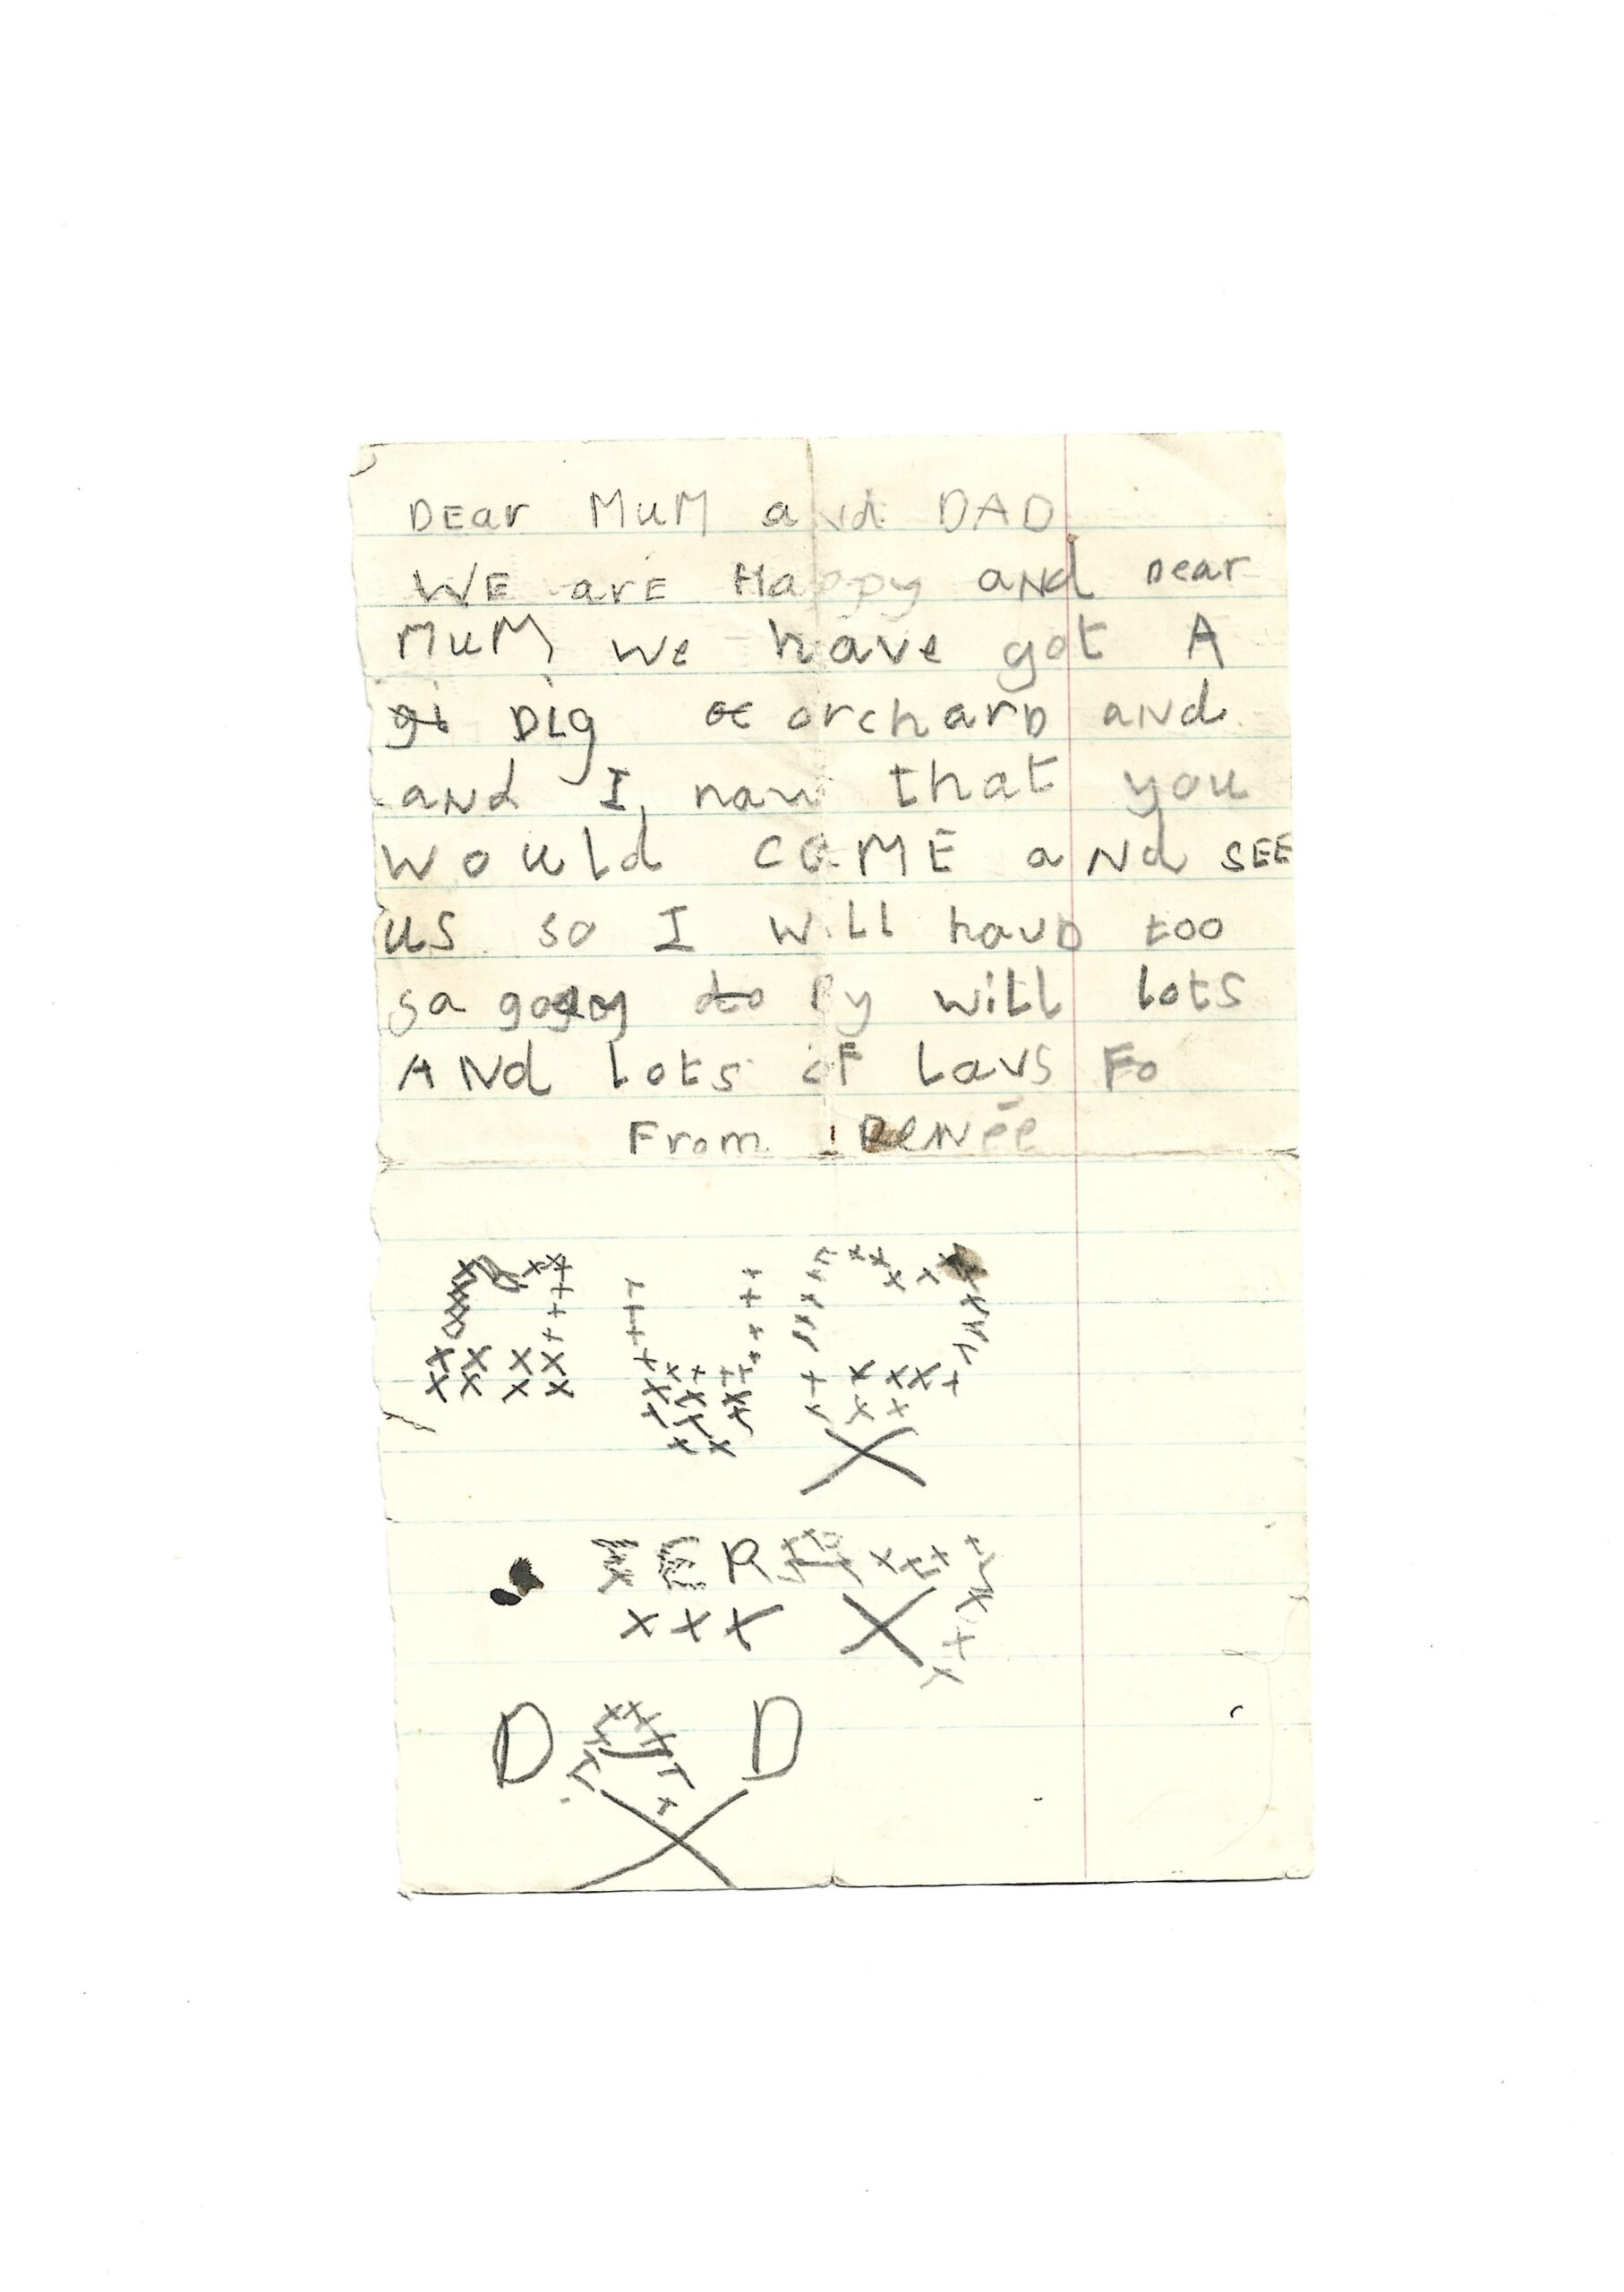 DEar MuM and DAD
WE arE Happy aNd Dear
MuM we have got A
gi DIg oc orcharD aNd
aNd I naw that you
would COME aNd SEE
us so I will havD too
sa gooy to By will lots
ANd lots oF Lavs Fo
From RENēe
D D